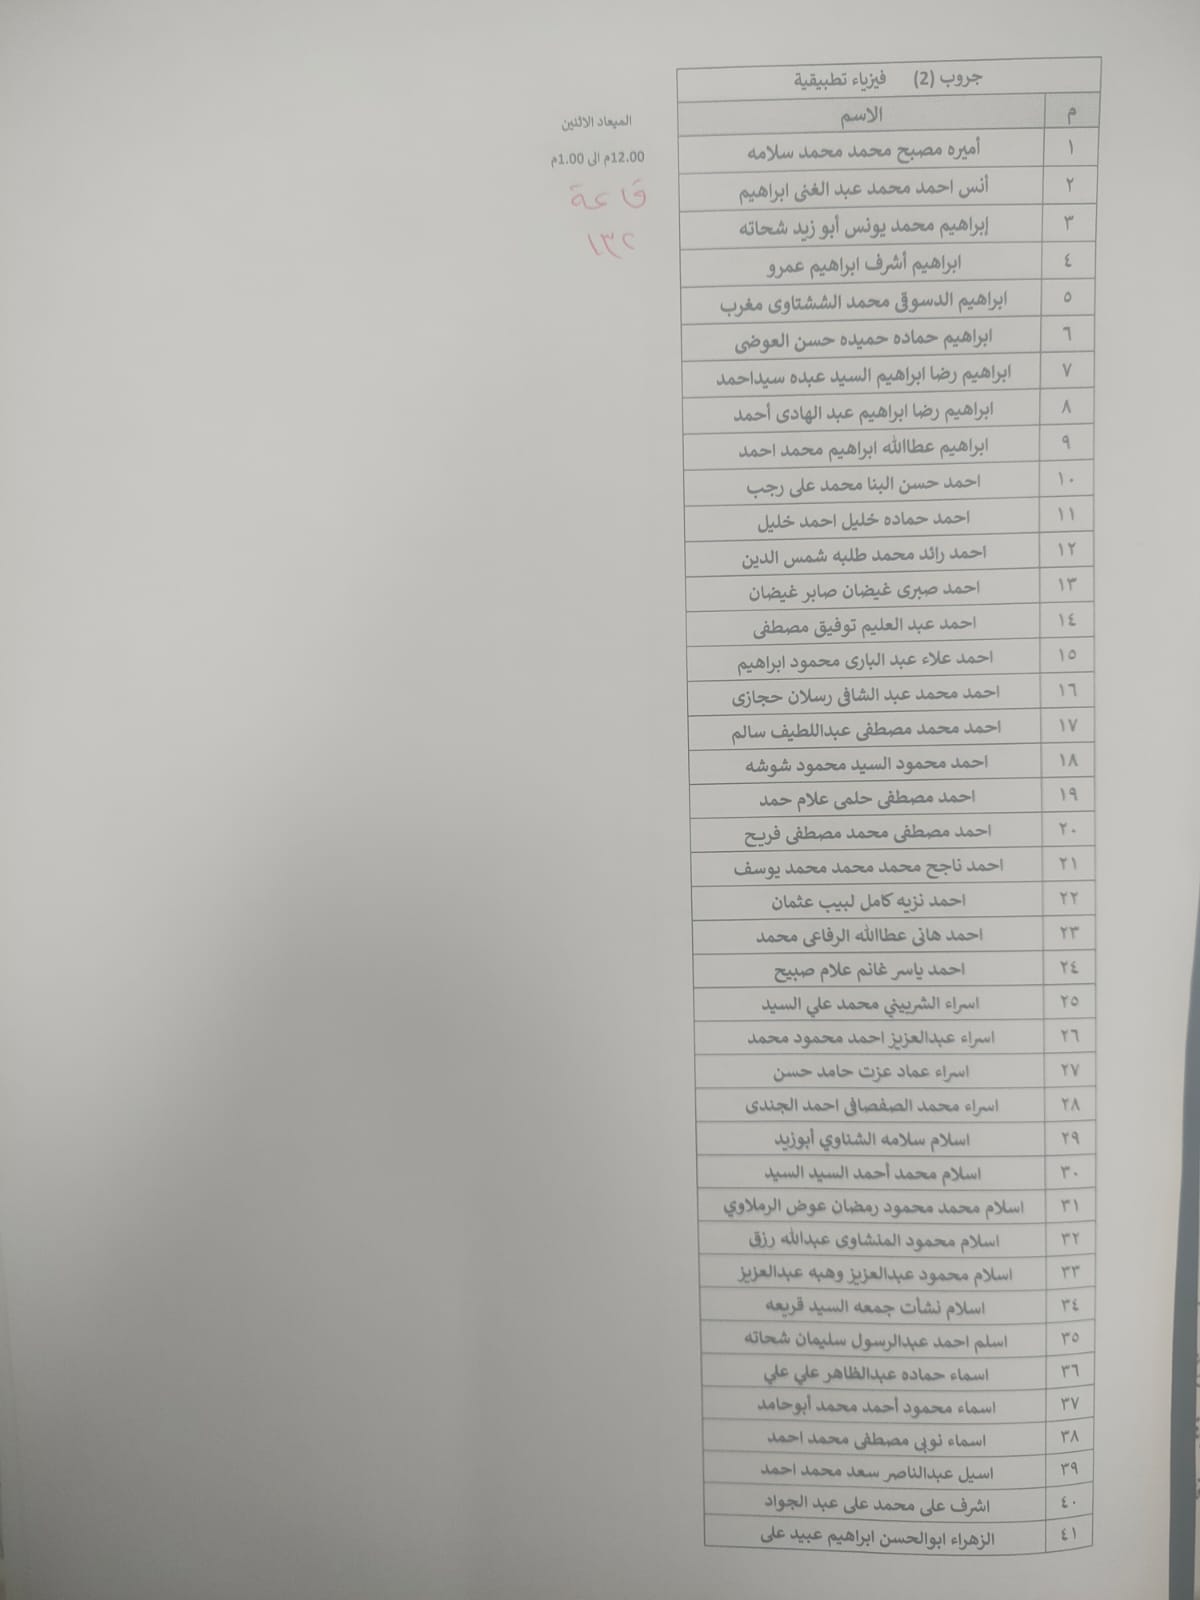 جروب (2) فيزياء تطبيقية
م الاسم
١ أميره مصبح محمد محمد سلامه
٢ أنس احمد محمد عبد الغنى ابراهيم
٣ إبراهيم محمد يونس أبو زيد شحاته
٤ ابراهيم أشرف ابراهيم عمرو
٥ ابراهيم الدسوقى محمد الششتاوى مغرب
٦ ابراهيم حماده حميده حسن العوضى
٧ ابراهيم رضا ابراهيم السيد عبده سيداحمد
٨ ابراهيم رضا ابراهيم عبد الهادى أحمد
٩ ابراهيم عطاالله ابراهيم محمد احمد
١٠ احمد حسن البنا محمد على رجب
١١ احمد حماده خليل احمد خليل
١٢ احمد رائد محمد طلبه شمس الدين
١٣ احمد صبرى غيضان صابر غيضان
١٤ احمد عبد العليم توفيق مصطفى
١٥ احمد علاء عبد البارى محمود ابراهيم
١٦ احمد محمد عبد الشافى رسلان حجازى
١٧ احمد محمد مصطفى عبداللطيف سالم
١٨ احمد محمود السيد محمود شوشه
١٩ احمد مصطفى حلمى علام حمد
٢٠ احمد مصطفى محمد مصطفى فريح
٢١ احمد ناجح محمد محمد محمد يوسف
٢٢ احمد نزيه كامل لبيب عثمان
٢٣ احمد هانى عطاالله الرفاعى محمد
٢٤ احمد ياسر غانم علام صبيح
٢٥ اسراء الشربيني محمد علي السيد
٢٦ اسراء عبدالعزيز احمد محمود محمد
٢٧ اسراء عماد عزت حامد حسن
٢٨ اسراء محمد الصفصافى احمد الجندى
٢٩ اسلام سلامه الشناوي أبوزيد
٣٠ اسلام محمد أحمد السيد السيد
٣١ اسلام محمد محمود رمضان عوض الرملاوي
٣٢ اسلام محمود المنشاوى عبدالله رزق
٣٣ اسلام محمود عبدالعزيز وهبه عبدالعزيز
٣٤ اسلام نشأت جمعه السيد قريعه
٣٥ اسلم احمد عبدالرسول سليمان شحاته
٣٦ اسماء حماده عبدالظاهر علي علي
٣٧ اسماء محمود أحمد محمد أبوحامد
٣٨ اسماء نوبي مصطفى محمد احمد
٣٩ اسيل عبدالناصر سعد محمد احمد
٤٠ اشرف على محمد على عبد الجواد
٤١ الزهراء ابوالحسن ابراهيم عبيد على
الميعاد الاثنين
12.00م الى 1.00م
قاعة
١٣٢